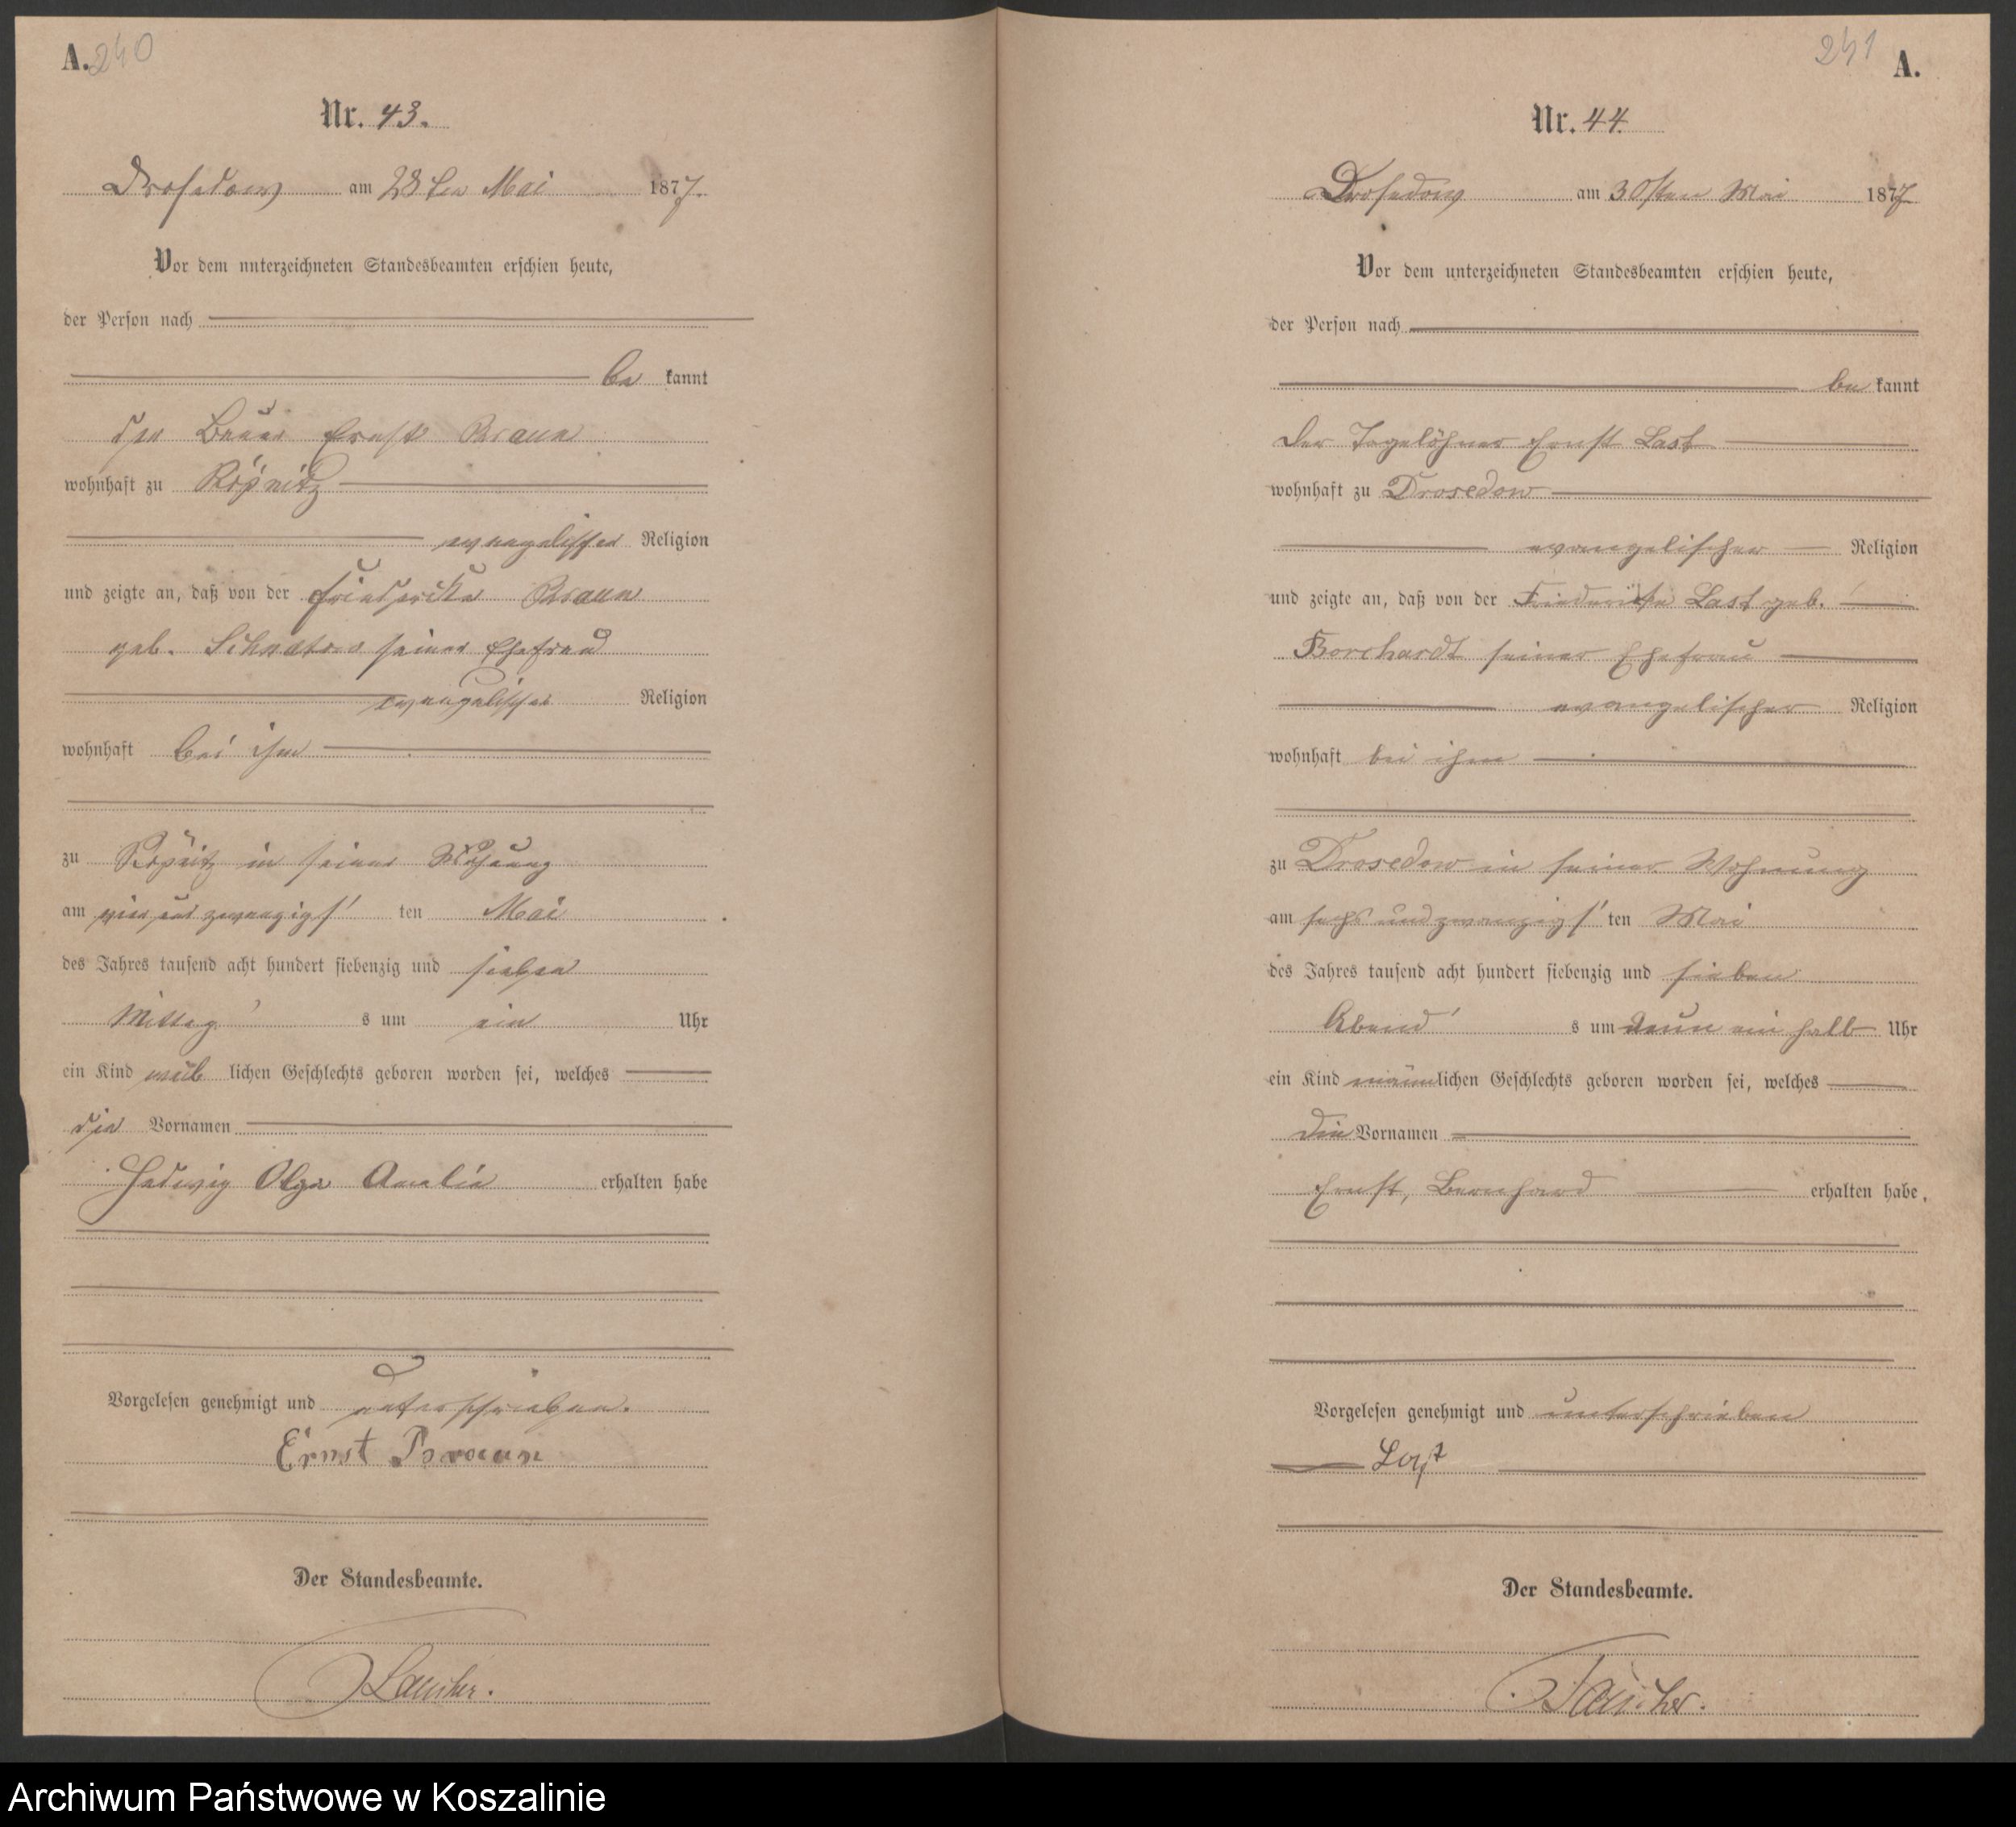 A. 240
Nr. 43.
Drosedow am 28ten Mai 1877.
Vor dem unterzeichneten Standesbeamten erschien heute,
der Person nach
be kannt
der Bauer Ernst Braun
wohnhaft zu Röpnitz
evangelischer Religion
und zeigte an, daß von der Friederike Braun
geb. seiner Ehefrau
evangelischer Religion
wohnhaft bei ihm
zu Röpnitz in seiner Wohnung
am vier und zwanzigs ten Mai
des Jahres tausend acht hundert siebenzig und sieben
Mittag s um ein Uhr
ein Kind weib lichen Geschlechts geboren worden sei, welches
die Vornamen
Hedwig Olga Amalie erhalten habe
Vorgelesen genehmigt und unterschrieben.
Ernst Braun
Der Standesbeamte.
Tauscher.
241 A.
Nr. 44.
Drosedow am 30sten Mai 1877
Vor dem unterzeichneten Standesbeamten erschien heute,
der Person nach
be kannt
Der Tagelöhner Ernst Last
wohnhaft zu Drosedow
evangelischer Religion
und zeigte an, daß von der Friederike Last geb.
Borchardt seiner Ehefrau
evangelischer Religion
wohnhaft bei ihm
zu Drosedow in seiner Wohnung
am sechs und zwanzigs ten Mai
des Jahres tausend acht hundert siebenzig und sieben
Abend s um Neun ein halb Uhr
ein Kind männlichen Geschlechts geboren worden sei, welches
die Vornamen
Ernst, Bernhard erhalten habe.
Vorgelesen genehmigt und unterschrieben
Last
Der Standesbeamte.
Tauscher.
Archiwum Państwowe w Koszalinie